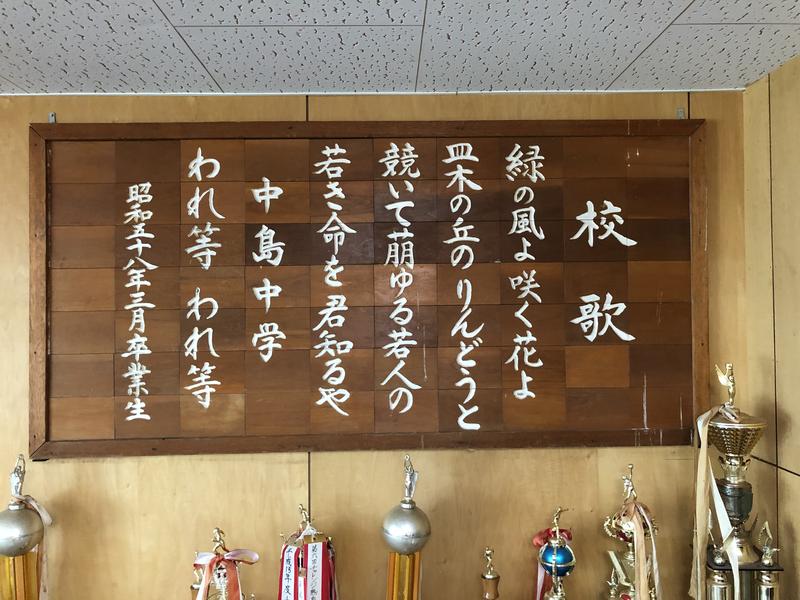 校歌
緑の風よ咲く花よ
皿木の丘のりんどうと
競いて萌ゆる若人の
若き命を君知るや
中島中学
われ等 われ等
昭和五十八年三月卒業生